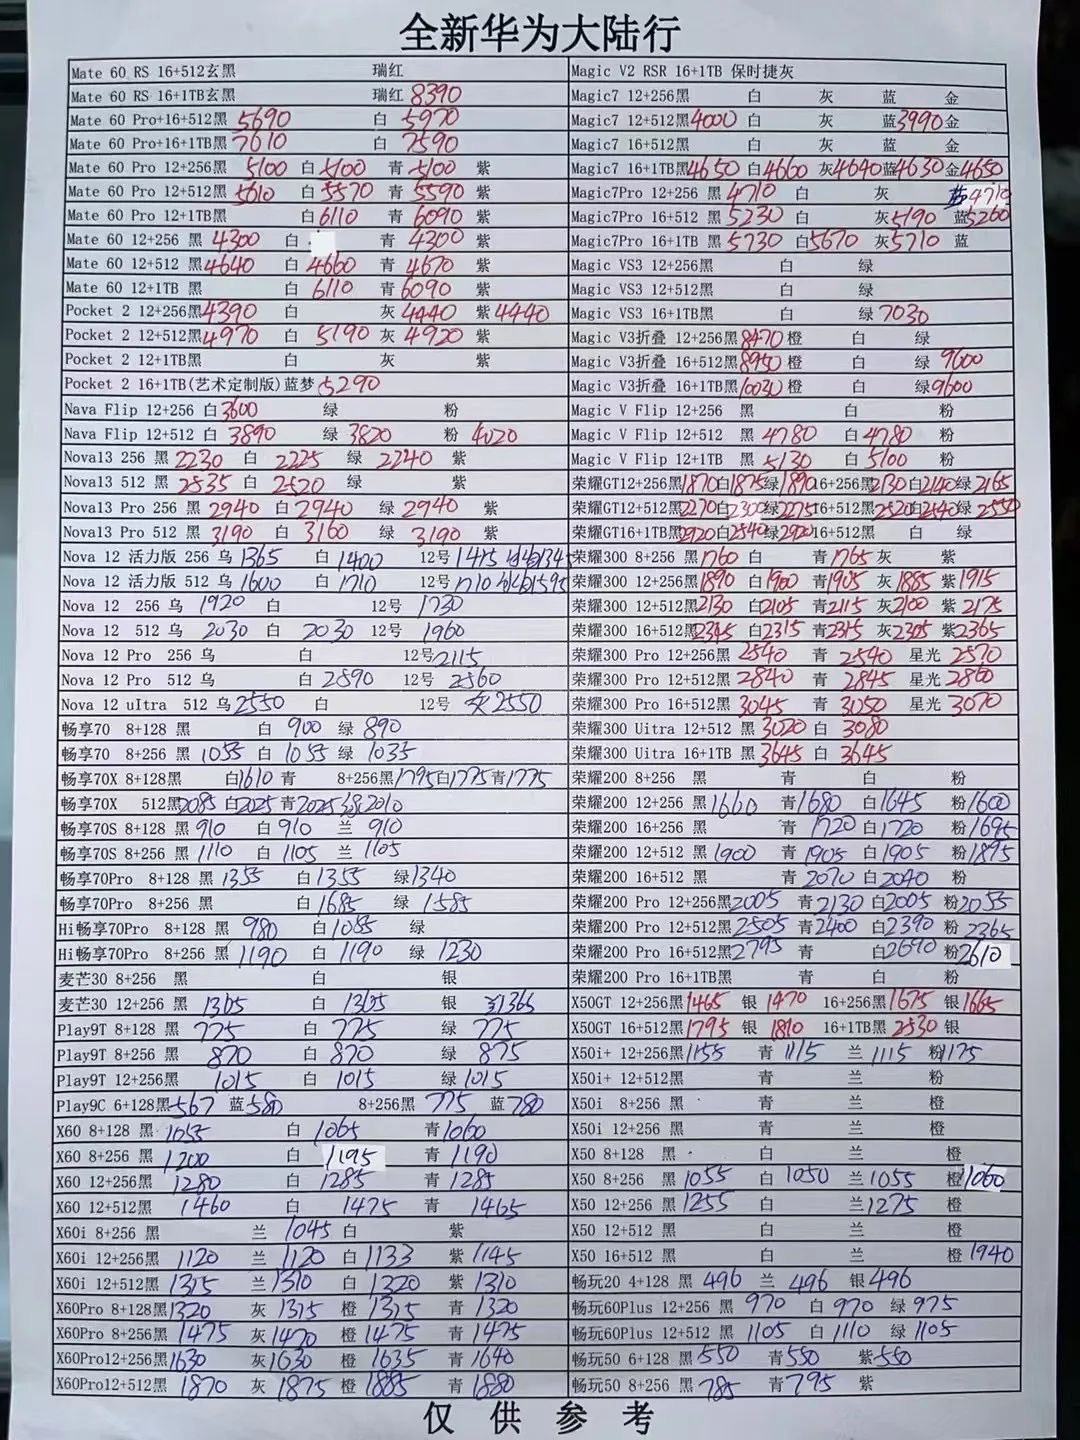 全新华为大陆行
Mate 60 RS 16+512玄黑 瑞红
Mate 60 RS 16+1TB玄黑 瑞红 8390
Mate 60 Pro+16+512黑 5690 白 5970
Mate 60 Pro+16+1TB黑 7610 白 7590
Mate 60 Pro 12+256黑 5100 白 5100 青 5100 紫
Mate 60 Pro 12+512黑 5610 白 5570 青 5590 紫
Mate 60 Pro 12+1TB黑 白 6110 青 6090 紫
Mate 60 12+256 黑 4300 白 青 4300 紫
Mate 60 12+512 黑 4640 白 4660 青 4670 紫
Mate 60 12+1TB 黑 白 6110 青 6090 紫
Pocket 2 12+256黑 4390 白 灰 4440 紫 4440
Pocket 2 12+512黑 4970 白 5190 灰 4920 紫
Pocket 2 12+1TB黑 白 灰 紫
Pocket 2 16+1TB(艺术定制版)蓝梦 5290
Nava Flip 12+256 白 3600 绿 粉
Nava Flip 12+512 白 3890 绿 3820 粉 4020
Nova13 256 黑 2230 白 2225 绿 2240 紫
Nova13 512 黑 2535 白 2520 绿 紫
Nova13 Pro 256 黑 2940 白 2940 绿 2940 紫
Nova13 Pro 512 黑 3190 白 3160 绿 3190 紫
Nova 12 活力版 256 乌 1365 白 1400 12号 1415 1345
Nova 12 活力版 512 乌 1600 白 1710 12号 1710 1595
Nova 12 256 乌 1920 白 12号 1730
Nova 12 512 乌 2030 白 2030 12号 1960
Nova 12 Pro 256 乌 白 12号 2115
Nova 12 Pro 512 乌 白 2590 12号 2560
Nova 12 uItra 512 乌 2550 白 12号 灰 2550
畅享70 8+128 黑 白 900 绿 890
畅享70 8+256 黑 1055 白 1055 绿 1035
畅享70X 8+128黑 白 1610 青 8+256黑 1795 白 1775 青 1775
畅享70X 512黑 2085 白 2025 青 2025 绿 2010
畅享70S 8+128 黑 910 白 910 兰 910
畅享70S 8+256 黑 1110 白 1105 兰 1105
畅享70Pro 8+128 黑 1355 白 1355 绿 1340
畅享70Pro 8+256 黑 白 1685 绿 1585
Hi畅享70Pro 8+128 黑 980 白 1085 绿
Hi畅享70Pro 8+256 黑 1190 白 1190 绿 1230
麦芒30 8+256 黑 白 银
麦芒30 12+256 黑 1305 白 1305 银 1365
Play9T 8+128 黑 775 白 775 绿 775
Play9T 8+256 黑 870 白 870 绿 875
Play9T 12+256黑 1015 白 1015 绿 1015
Play9C 6+128黑 567 蓝 580 8+256黑 775 蓝 780
X60 8+128 黑 1055 白 1065 青 1060
X60 8+256 黑 1200 白 1195 青 1190
X60 12+256黑 1280 白 1285 青 1285
X60 12+512黑 1460 白 1475 青 1465
X60i 8+256 黑 兰 1045 白 紫
X60i 12+256黑 1120 兰 1120 白 1133 紫 1145
X60i 12+512黑 1315 兰 1310 白 1320 紫 1310
X60Pro 8+128黑 1320 灰 1315 橙 1315 青 1320
X60Pro 8+256黑 1475 灰 1470 橙 1475 青 1475
X60Pro12+256黑 1630 灰 1630 橙 1635 青 1640
X60Pro12+512黑 1870 灰 1875 橙 1885 青 1880
Magic V2 RSR 16+1TB 保时捷灰
Magic7 12+256黑 白 灰 蓝 金
Magic7 12+512黑 4000 白 灰 蓝 3990 金
Magic7 16+512黑 白 灰 蓝 金
Magic7 16+1TB黑 4650 白 4660 灰 4640 蓝 4630 金 4650
Magic7Pro 12+256 黑 4710 白 灰 4710
Magic7Pro 16+512 黑 5230 白 灰 5190 蓝 5260
Magic7Pro 16+1TB 黑 5730 白 5670 灰 5710 蓝
Magic VS3 12+256黑 白 绿
Magic VS3 12+512黑 白 绿
Magic VS3 16+1TB黑 白 绿 7030
Magic V3折叠 12+256黑 8470 橙 白 绿
Magic V3折叠 16+512黑 8950 橙 白 绿 9600
Magic V3折叠 16+1TB黑 10030 橙 白 绿 9600
Magic V Flip 12+256 黑 白 粉
Magic V Flip 12+512 黑 4780 白 4780 粉
Magic V Flip 12+1TB 黑 5130 白 5100 粉
荣耀GT12+256黑 1870 白 1875 绿 1890 16+256黑 2130 白 2140 绿 2165
荣耀GT12+512黑 2270 白 2300 绿 2275 16+512黑 2520 白 2540 绿 2550
荣耀GT16+1TB黑 2920 白 2540 绿 2920 16+512黑 白 绿
荣耀300 8+256 黑 1760 白 青 1765 灰 紫
荣耀300 12+256黑 1890 白 1900 青 1905 灰 1885 紫 1915
荣耀300 12+512黑 2130 白 2105 青 2115 灰 2100 紫 2175
荣耀300 16+512黑 2345 白 2315 青 2315 灰 2305 紫 2365
荣耀300 Pro 12+256黑 2540 青 2540 星光 2570
荣耀300 Pro 12+512黑 2840 青 2845 星光 2860
荣耀300 Pro 16+512黑 3045 青 3050 星光 3070
荣耀300 Uitra 12+512 黑 3020 白 3080
荣耀300 Uitra 16+1TB 黑 3645 白 3645
荣耀200 8+256 黑 青 白 粉
荣耀200 12+256 黑 1660 青 1680 白 1645 粉 1600
荣耀200 16+256 黑 青 1720 白 1720 粉 1695
荣耀200 12+512 黑 1900 青 1905 白 1905 粉 1895
荣耀200 16+512 黑 青 2070 白 2040 粉
荣耀200 Pro 12+256黑 2005 青 2130 白 2005 粉 2055
荣耀200 Pro 12+512黑 2505 青 2400 白 2390 粉 2365
荣耀200 Pro 16+512黑 2795 青 白 2690 粉 2610
荣耀200 Pro 16+1TB黑 青 白 粉
X50GT 12+256黑 1465 银 1470 16+256黑 1675 银 1665
X50GT 16+512黑 1795 银 1810 16+1TB黑 2530 银
X50i+ 12+256黑 1155 青 1115 兰 1115 粉 1175
X50i+ 12+512黑 青 兰 粉
X50i 8+256黑 青 兰 橙
X50i 12+256 黑 青 兰 橙
X50 8+128 黑 白 兰 橙
X50 8+256 黑 1055 白 1050 兰 1055 橙 1060
X50 12+256 黑 1255 白 兰 1275 橙
X50 12+512 黑 白 兰 橙
X50 16+512 黑 白 兰 橙 1940
畅玩20 4+128 黑 496 兰 496 银 496
畅玩60Plus 12+256 黑 970 白 970 绿 975
畅玩60Plus 12+512 黑 1105 白 1110 绿 1105
畅玩50 6+128 黑 550 青 550 紫 550
畅玩50 8+256 黑 785 青 795 紫
仅供参考